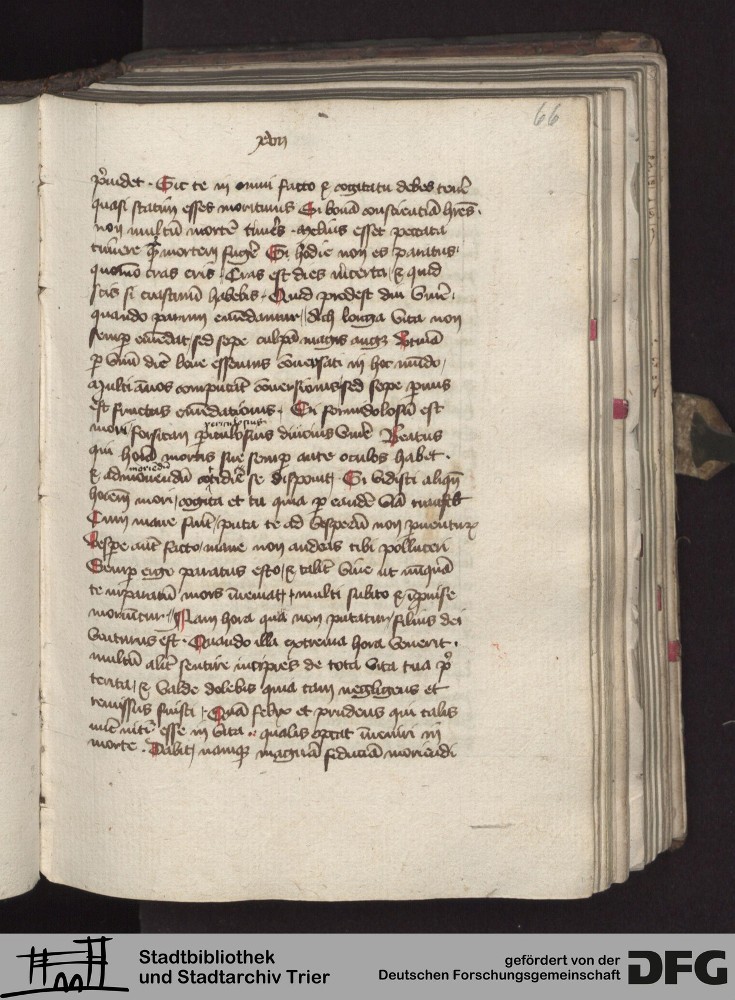 66
xvii
p̄uidet. Sic te in omni facto ⁊ cogitatu debes ten̄e
quasi statim esses moriturus Si bonā conscientiā h̄res.
non multū mortē tim̄es. Melius esset peccata
timere q̄ mortem fuḡe Si hodie non es paratus
quomō cras eris. Cras est dies īcerta, ⁊ quid
scis si crastinū habebis. Quid prodest diu viūe.
quando parum emēdantur, Ach longa vita non
semꝑ emēdat, sed sepe culpā magis auget Vtinā
ꝑ vnū diē bene essemus cōuersati in hoc mūdo,
Multi ānos computāt cōuersionis, sed sepe paruus
est fructus emēdationis. Si formidolosū est
mori forsitan periculosius
piculosius diucius viūe Beatus
qui horā mortis sue semꝑ ante oculos habet.
⁊ ad moriendū cotidie se disponit. Si vidisti aliqn̄
hoīem mori, cogita et tu quia ꝑ eandē viā transib
Cum mane fuīt, puta te ad vesperū non puenturū
Vespe aut̄ facto, mane non audeas tibi polliceri
Semꝑ ergo paratus esto, ⁊ talit̄ viue ut nūquā
te inparatū mors īueniat, multi subito ⁊ īprouise
moriūtur. Nam hora qua non putatur, filius dei
venturus est. Quando illa extrema hora venerit.
multū alit̄ sentire incipies de tota vita tua p̄
terita, ⁊ valde dolebis quia tam negligens et
remissus fuisti. Quā felix et prudens qui talis
nūc nitit̄ esse in vita. qualis optat īueniri in
morte. Dabit, namqꝫ magnā fiduciā moriendi
Stadtbibliothek
und Stadtarchiv Trier
gefördert von der
Deutschen Forschungsgemeinschaft
DFG